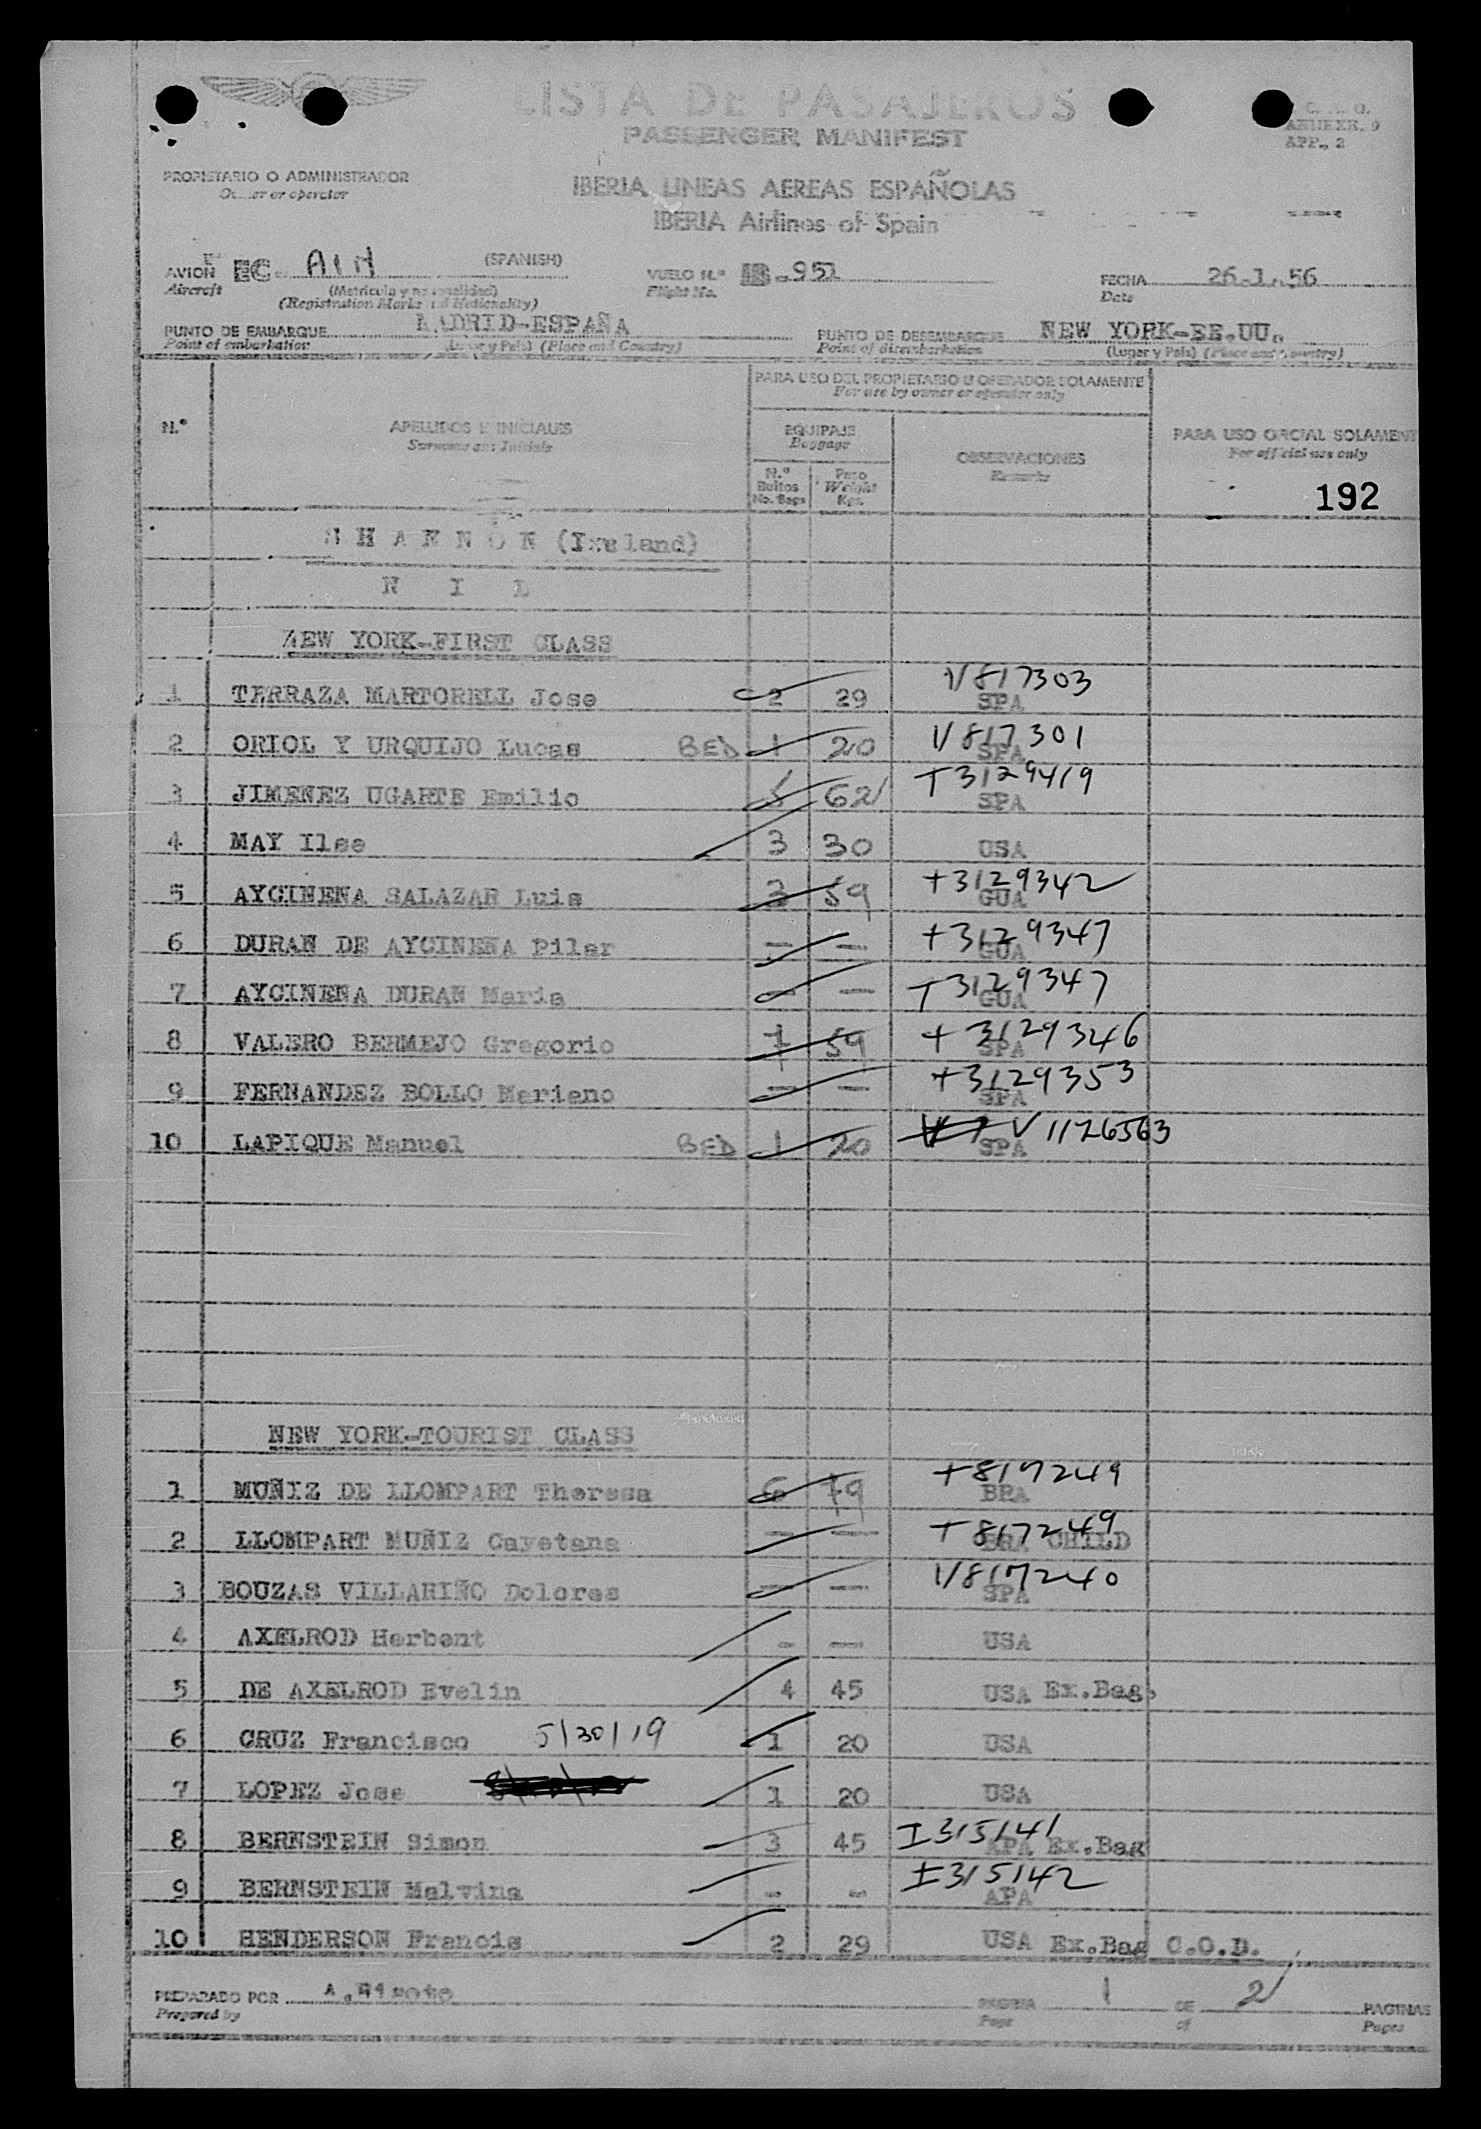 LISTA DE PASAJEROS
PASSENGER MANIFEST
ANNEXE. 9
APP., 2
PROPIETARIO O ADMINISTRADOR
Owner or operator
IBERIA LINEAS AEREAS ESPAÑOLAS
IBERIA Airlines of Spain
AVION EC- AIN (SPANISH)
Aircraft (Matricula y nacionalidad)
(Registration Marks and Nationality)
VUELO N.º IB-951
Flight No.
FECHA 26-1-56
Date
PUNTO DE EMBARQUE MADRID-ESPAÑA
Point of embarkation (Lugar y País) (Place and Country)
PUNTO DE DESEMBARQUE NEW YORK-EE.UU.
Point of disembarkation (Lugar y País) (Place and Country)
PARA USO DEL PROPIETARIO U OPERADOR SOLAMENTE
For use by owner or operator only
N.º
APELLIDOS E INICIALES
Surname and Initials
EQUIPAJE
Baggage
N.º Bultos
No. Bags
Peso
Weight
Kgs.
OBSERVACIONES
Remarks
PARA USO OFICIAL SOLAMENT
For official use only
192
SHANNON (Ireland)
NIL
NEW YORK-FIRST CLASS
1 TERRAZA MARTORELL Jose 2 29 V817303 SPA
2 ORIOL Y URQUIJO Lucas BED 1 20 V817301 SPA
3 JIMENEZ UGARTE Emilio 5 62 T3129419 SPA
4 MAY Ilse 3 30 USA
5 AYCINENA SALAZAR Luis 3 59 T3129342 GUA
6 DURAN DE AYCINENA Pilar — — T3129347 GUA
7 AYCINENA DURAN Maria — — T3129347 GUA
8 VALERO BERMEJO Gregorio 7 59 T3129346 SPA
9 FERNANDEZ BOLLO Mariano — — T3129353 SPA
10 LAPIQUE Manuel BED 1 20 V1126563 SPA
NEW YORK-TOURIST CLASS
1 MUÑIZ DE LLOMPART Theresa 6 79 T817249 BRA
2 LLOMPART MUÑIZ Cayetana — — T817249 BRA CHILD
3 BOUZAS VILLARIÑO Dolores — — V817240 SPA
4 AXELROD Herbent - — USA
5 DE AXELROD Evelin 4 45 USA Ex.Bag.
6 CRUZ Francisco 5/30/19 1 20 USA
7 LOPEZ Jose 1 20 USA
8 BERNSTEIN Simon 3 45 I315141 APA Ex.Bag
9 BERNSTEIN Malvina - - I315142 APA
10 HENDERSON Francis 2 29 USA Ex.Bag C.O.D.
PREPARADO POR
Prepared by
PAGINA 1 DE 2 PAGINAS
Page of Pages